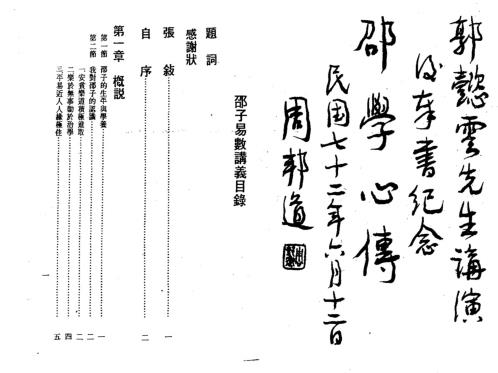 郭懿雲先生講演
後奉書紀念
邵學心傳
民国七十二年六月十二日
周邦道
邵子易數講義目錄
題詞
感謝狀
張敍……………………一
自序……………………二
第一章 概説
第一節 邵子的生平與學養……………………一
第二節 我對邵子的認識……………………二
一安貧樂道積極進取……………………二
二樂於無事勤於治學……………………四
三平易近人人緣極佳……………………五
一